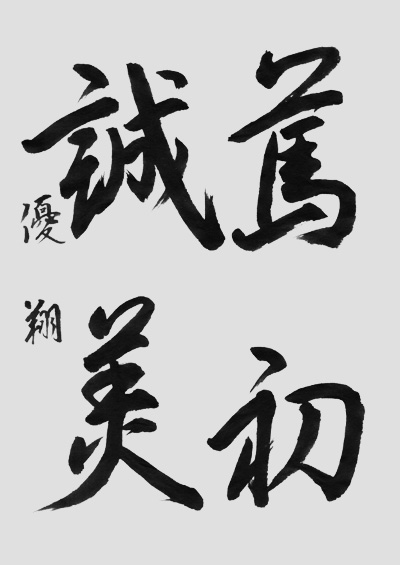 篤初
誠美
優翔